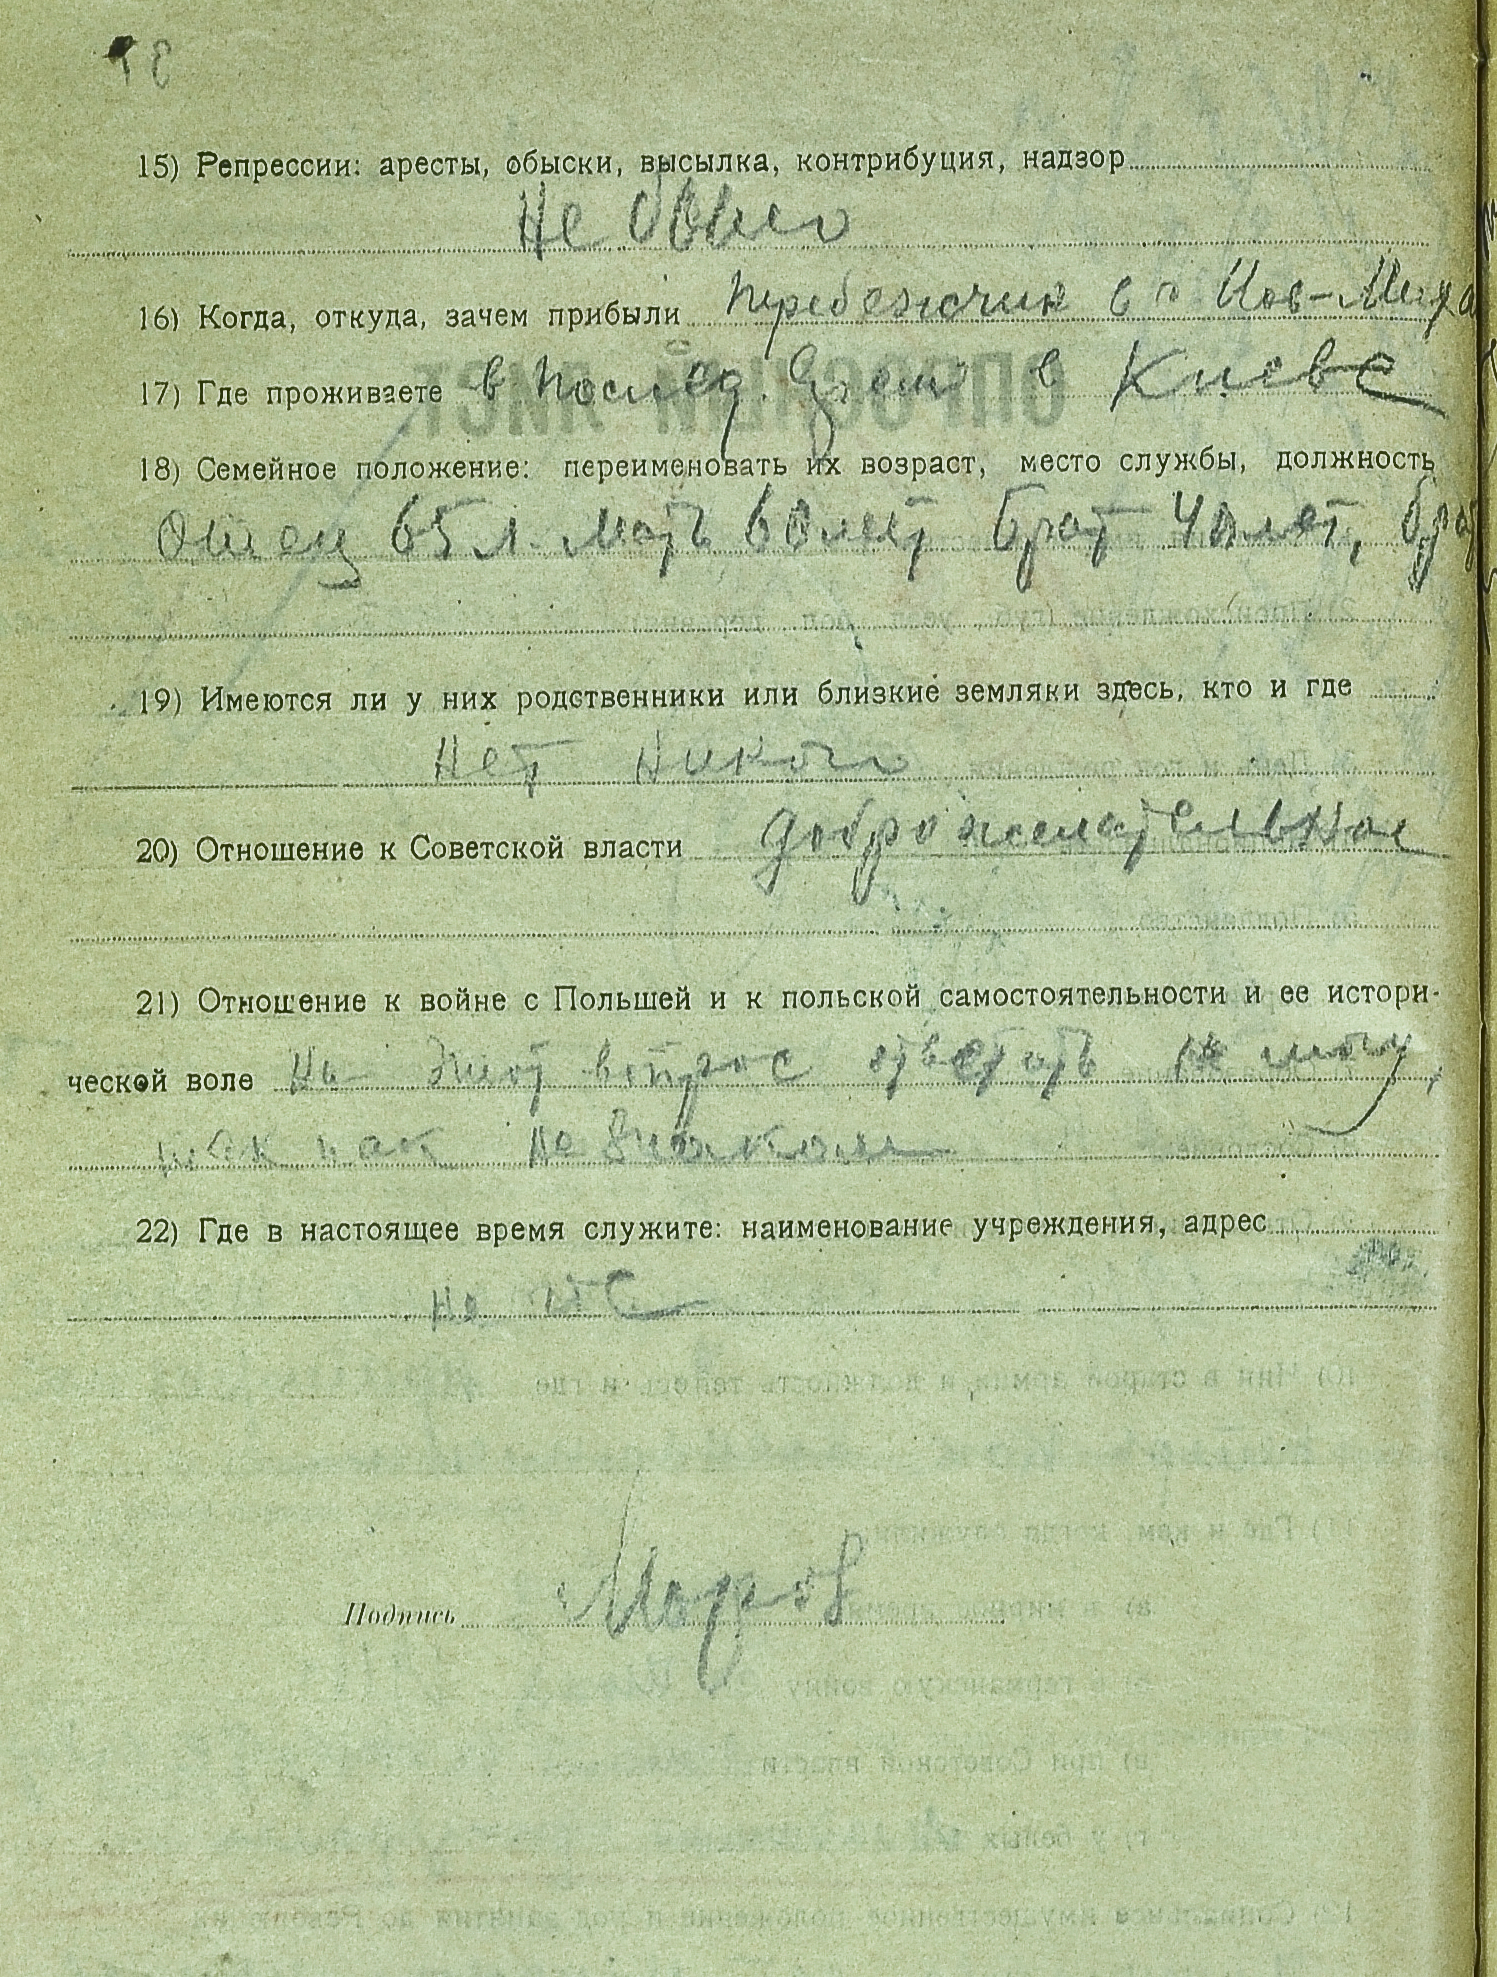 15) Репрессии: аресты, обыски, высылка, контрибуция, надзор
Не было
16) Когда, откуда, зачем прибыли перебежчик в с Нов-Миха
17) Где проживаете в послед. время в Киеве
18) Семейное положение: переименовать их возраст, место службы, должность
Отец 65 л. мать 60 лет брат 40 лет, брат
19) Имеются ли у них родственники или близкие земляки здесь, кто и где
Нет никого
20) Отношение к Советской власти доброжелательное
21) Отношение к войне с Польшей и к польской самостоятельности и ее истори-
ческой воле На этот вопрос ответать не могу,
так как не знаком
22) Где в настоящее время служите: наименование учреждения, адрес
Подпись